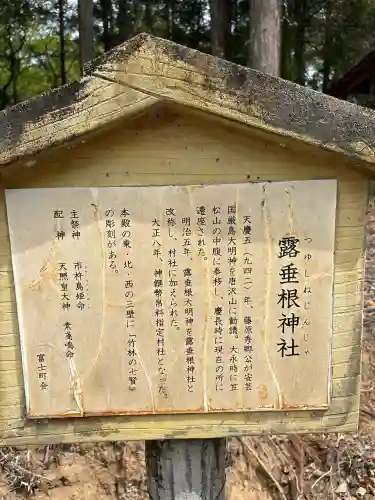 つゆしねじんじゃ
露垂根神社
天慶五（九四二）年、藤原秀郷公が安芸
国厳島大明神を唐沢山に勧請。大永時に宮
松山の中腹に奉移し、慶長時に現在の所に
遷座された。
明治五年、露垂根大明神を露垂根神社と
改称し、村社に加えられた。
大正八年、神饌幣帛料指定村社となった。
本殿の東・北・西の三壁に「竹林の七賢」
の彫刻がある。
主祭神　市杵島姫命
配神　天照皇大神　素戔嗚命
富士町會